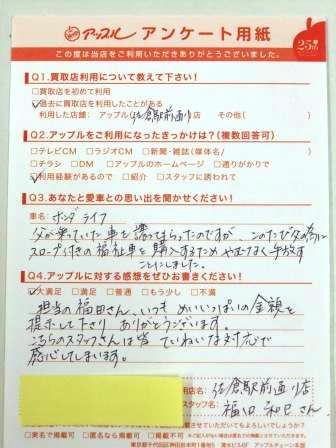 アップル アンケート用紙
25周年
この度は当店をご利用いただきありがとうございました。
Q1.買取店利用について教えて下さい!
□買取店を初めて利用
☑過去に買取店を利用したことがある
利用した店舗: アップル(佐倉駅前通り)店 その他( )
Q2.アップルをご利用になったきっかけは?(複数回答可)
□テレビCM □ラジオCM □新聞・雑誌(媒体名/ )
□チラシ □DM □アップルのホームページ □通りがかりで
☑利用経験があるので □紹介 □スタッフに誘われて
Q3.あなたと愛車との思い出を聞かせください!
車名: ホンダ ライフ
父が乗っていた車を譲ってもらったのですが、このたび父の為に
スロープ付きの福祉車を購入するためやむなく手放す
ことにしました。
Q4.アップルに対する感想をぜひお書きください!
☑大満足 □満足 □普通 □もう少し □不満
担当の福田さん、いつもめいいっぱいの金額を
提示して下さりありがとうございます。
こちらのスタッフさんは皆ていねいな対応で
感心してしまいます。
用店名: 佐倉駅前通り店
スタッフ名: 福田 和巳さん
させていただいてもよろしいでしょうか?
□実名で掲載可 □匿名なら掲載可 □掲載不可